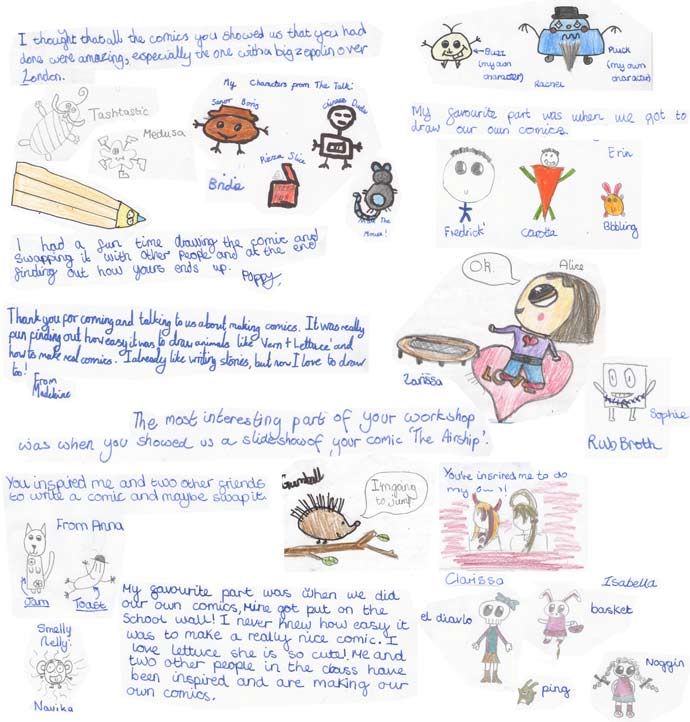 I thought that all the comics you showed us that you had
done were amazing, especially the one with a big zepolin over
London.
Buzz
(my own
character)
Rachel
Pluck
(my own
character)
My Characters from The Talk:
Tashtastic
Medusa
Senor Boris
Bride
Pizza Slice
Mouse!
My favourite part was when we got to
draw our own comics.
Erin
Fredrick
Carotta
Bobling
I had a fun time drawing the comic and
swapping it with other people and at the end
finding out how yours ends up. Poppy,
Ok.
Alice
Thank you for coming and talking to us about making comics. It was really
fun finding out how easy it was to draw animals like 'Vern + Lettuce' and
how to make real comics. I already like writing stories, but now I love to draw
too!
From
Madeleine
Larissa
LOVE
Sophie
Rub Broth
The most interesting part of your workshop
was when you showed us a slideshow of your comic 'The Airship'.
You inspired me and two other friends
to write a comic and maybe swap it.
From Anna
Jam
Toast
I'm going
to jump
You've insrired me to do
my own!
My favourite part was when we did
our own comics, Mine got put on the
School wall! I never knew how easy it
was to make a really nice comic. I
love lettuce she is so cute! Me and
two other people in the class have
been inspired and are making our
own comics.
Smelly
Nelly!
Navika
Clarissa
el diavlo
Isabella
basket
ping
Noggin